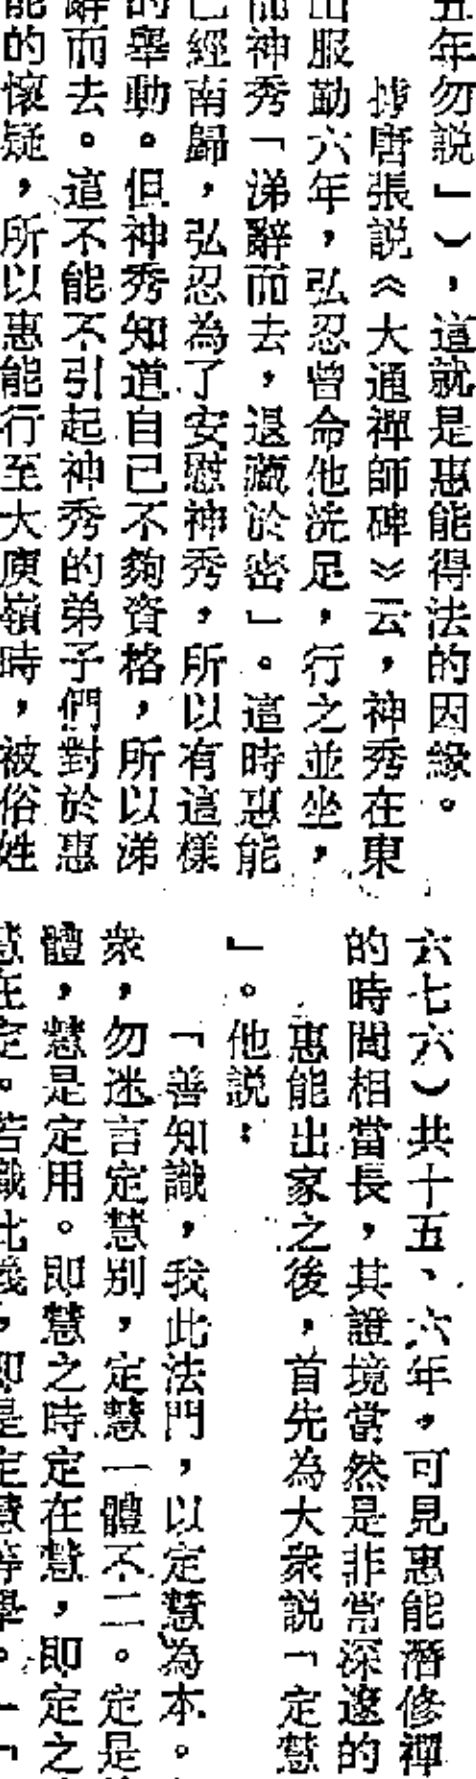 五年勿說」），這就是惠能得法的因緣。
據唐張說《大通禪師碑》云，神秀在東
山服勤六年，弘忍曾命他洗足，行之並坐，
而神秀「涕辭而去，退藏於密」。這時惠能
已經南歸，弘忍為了安慰神秀，所以有這樣
的舉動。但神秀知道自己不夠資格，所以涕
辭而去。這不能不引起神秀的弟子們對於惠
能的懷疑，所以惠能行至大庾嶺時，被俗姓
六七六）共十五、六年，可見惠能潛修禪
的時間相當長，其證境當然是非常深邃的
惠能出家之後，首先為大衆說「定慧
」。他說：
「善知識，我此法門，以定慧為本。
衆，勿迷言定慧別，定慧一體不二。定是
體，慧是定用。即慧之時定在慧，即定之
慧在定。若識此義，即是定慧等學。」「